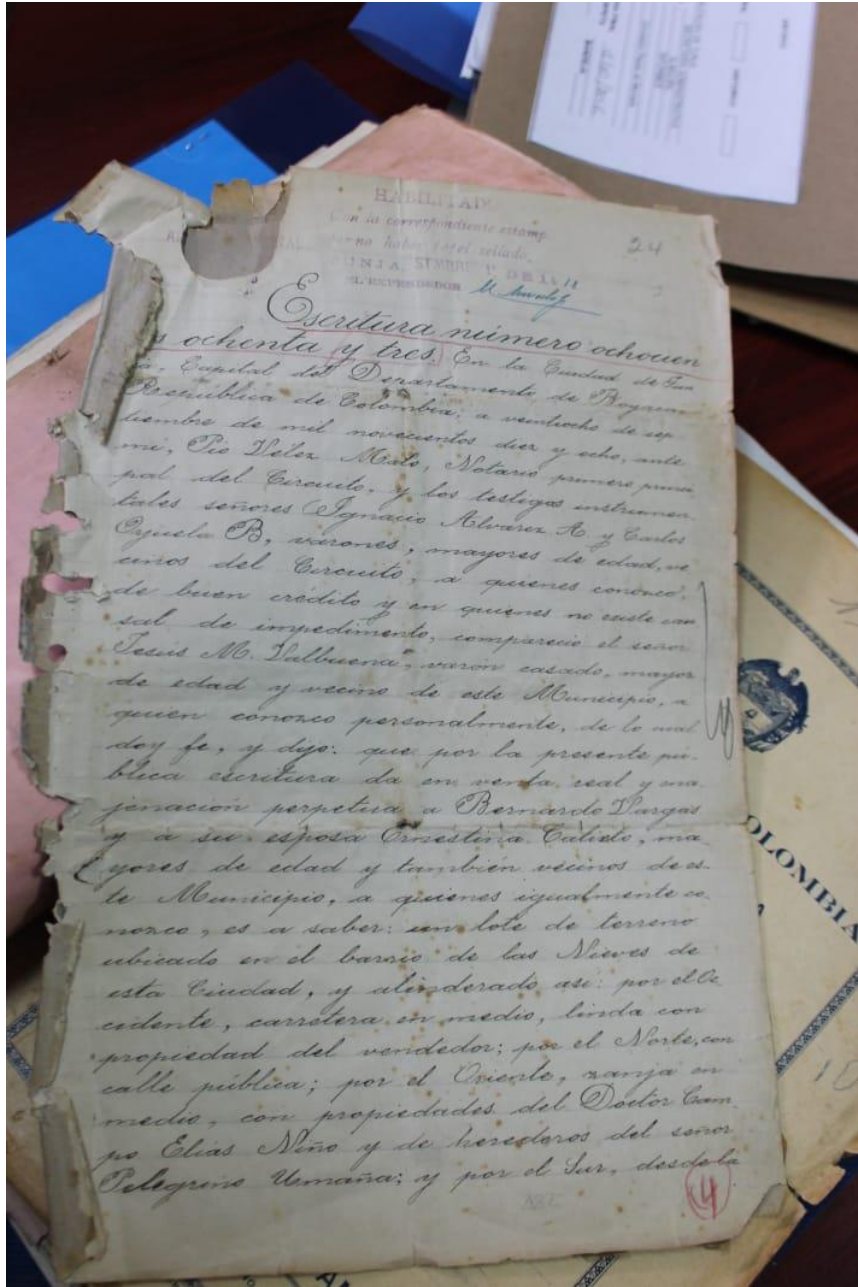 HABILITA
Con la correspondiente estamp
por no haber papel sellado.
TUNJA,
EL EXPENDEDOR
24
Escritura número ochocien
os ochenta y tres. En la Ciudad de Tun
ja, Capital del Departamento de Boyacá
República de Colombia, a veintiocho de sep
tiembre de mil novecientos diez y ocho, ante
mi, Pio Vélez Malo, Notario primero princi
pal del Circuito, y los testigos instrumen-
tales señores Ignacio Alvarez A. y Carlos
Oyuela B, varones, mayores de edad, ve
cinos del Circuito, a quienes conozco,
de buen crédito y en quienes no existe cau
sal de impedimento, compareció el señor
Jesús M. Valbuena, varón casado, mayor
de edad y vecino de este Municipio, a
quien conozco personalmente, de lo cual
doy fe, y dijo: que por la presente pú-
blica escritura da en venta real y ena-
jenación perpetua a Bernardo Vargas
y a su esposa Ernestina, ma-
yores de edad y también vecinos de es-
te Municipio, a quienes igualmente co-
nozco, es a saber: un lote de terreno
ubicado en el barrio de las Nieves de
esta Ciudad, y alinderado asi: por el Oc
cidente, carretera en medio, linda con
propiedad del vendedor; por el Norte, con
calle pública; por el Oriente, zanja en
medio, con propiedades del Doctor Cam-
po Elías Niño y de herederos del señor
Pelegrino Umaña; y por el Sur, desde la
4
OLOMBIA